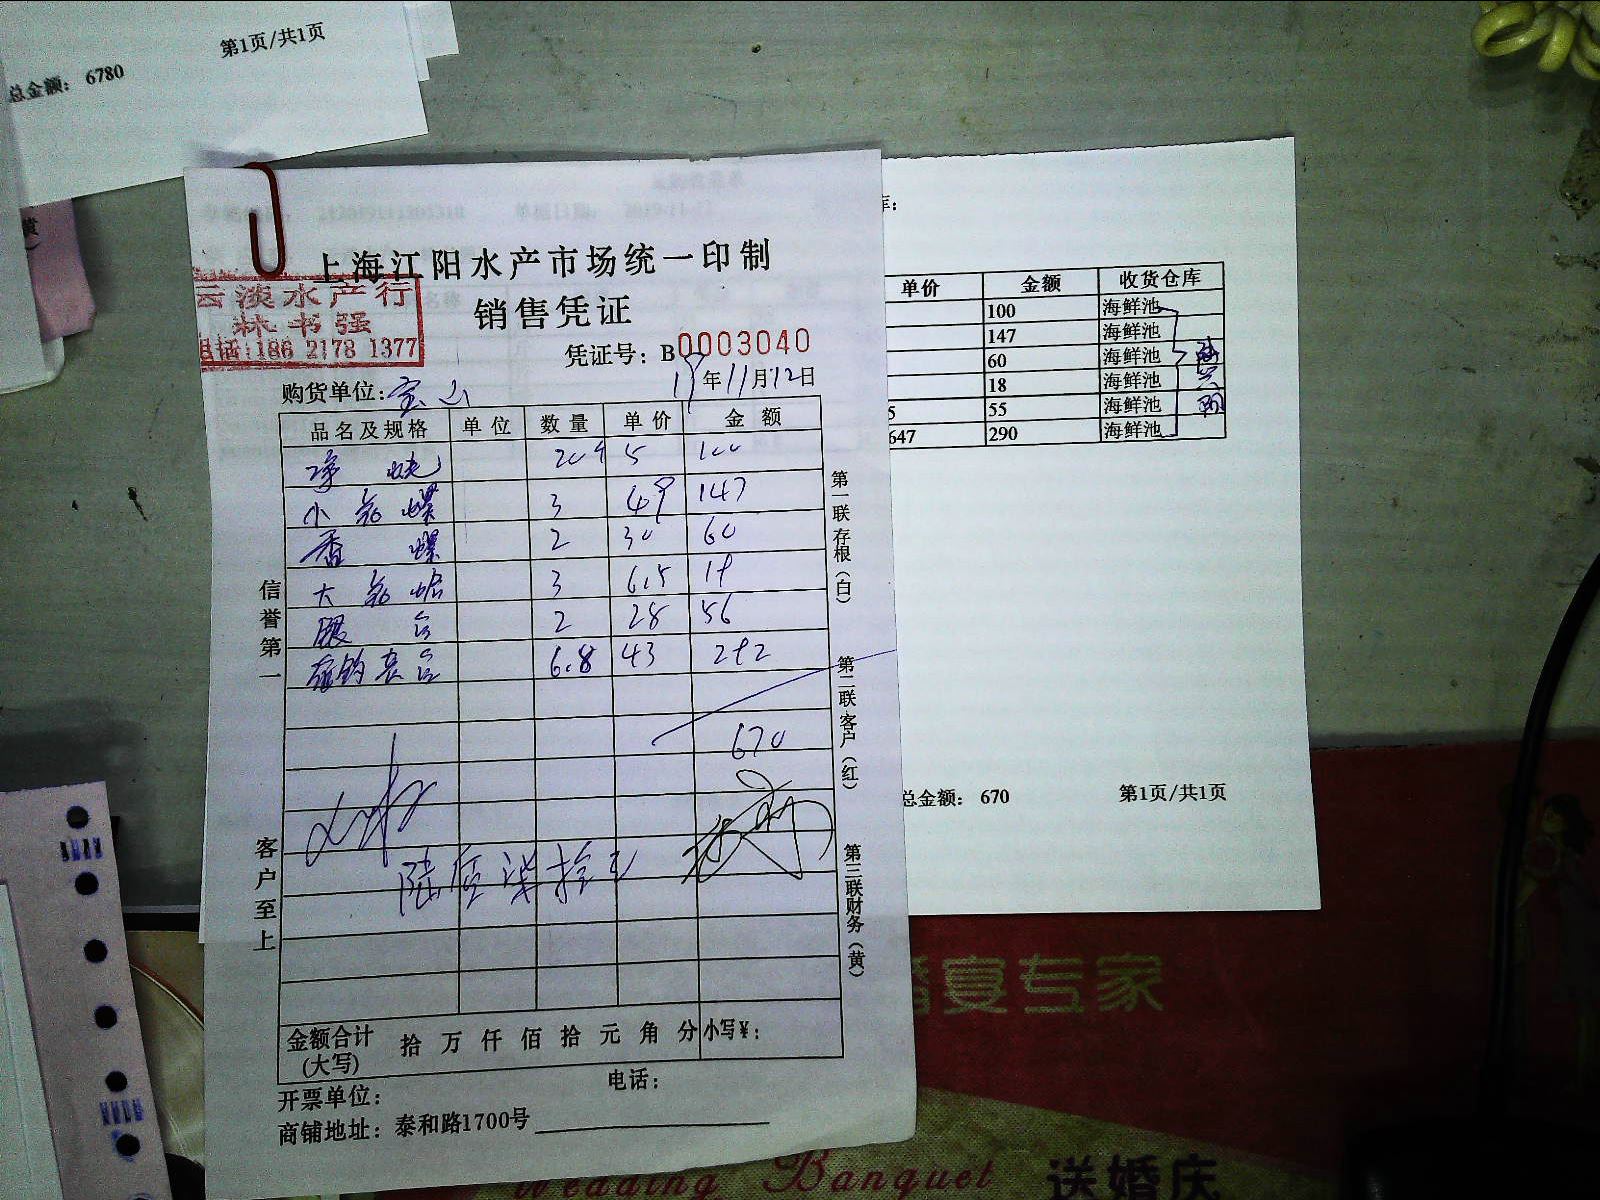 第1页/共1页
总金额: 6780
上海江阳水产市场统一印制
销售凭证
云淡水产行
林书强
电话:186 2178 1377
凭证号: B0003040
购货单位: 宝山
19年11月12日
品名及规格 单位 数量 单价 金额
5 100
小 螺 3 49 147
香 螺 2 30 60
大 3 6.5 18
2 28 56
6.8 43 292
670
陆佰柒拾元
信誉第一
客户至上
第一联存根(白)
第二联客户(红)
第三联财务(黄)
金额合计
(大写)
拾 万 仟 佰 拾 元 角 分 小写¥:
开票单位:
电话:
商铺地址: 泰和路1700号
库:
单价 金额 收货仓库
100 海鲜池
147 海鲜池
60 海鲜池
18 海鲜池
5 55 海鲜池
647 290 海鲜池
总金额: 670
第1页/共1页
婚宴专家
Wedding Banquet 送婚庆